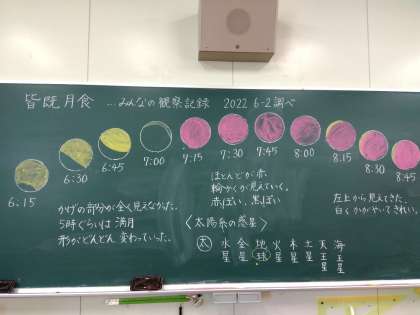 皆既月食 …みんなの観察記録 2022 6-2調べ
6:15
6:30
6:45
7:00
7:15
7:30
7:45
8:00
8:15
8:30
8:45
かげの部分が全く見えなかった。
5時ぐらいは満月
形がどんどん変わっていった。
ほとんどが赤
輪かくが見えていく。
赤っぽい、黒っぽい
左上から見えてきた。
白くかがやいてきれい。
〈太陽系の惑星〉
太
水星
金星
地球
火星
木星
土星
天王星
海王星